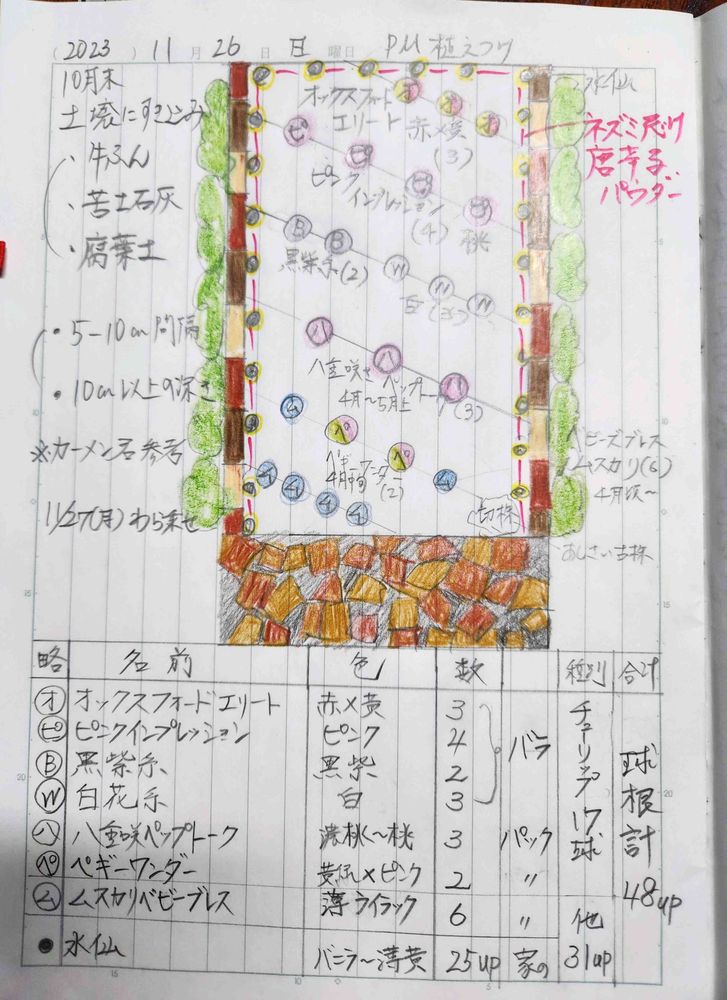 (2023) 11月26日 日曜日 PM 植えつけ
10月末
土壌にすきこみ
・牛ふん
・苦土石灰
・腐葉土
・5-10cm間隔
・10cm以上の深さ
※カーメン君参考
11/27(月)わら乗せ
オックスフォード
エリート 赤×黄
(3)
オ
オ
オ
ピ
ピ
ピ
ピ
ピンク
インプレッション
(4) 桃
B
B
黒紫系(2)
W
W
W
白(3)
八
八
八
八重咲き ペップトーク
4月〜5月上 (3)
ム
ペ
ペ
ペギーワンダー
4月中旬 (2)
ム
ム
ム
ム
ム
切株
水仙
ネズミ忌け
唐辛子
パウダー
ベビーズブレス
ムスカリ(6)
4月頃〜
あじさい古株
略 名前 色 数 種別 合計
オ オックスフォードエリート 赤×黄 3
ピ ピンクインプレッション ピンク 4 バラ
B 黒紫系 黒紫 2
W 白花系 白 3
八 八重咲ペップトーク 濃桃〜桃 3 パック
ペ ペギーワンダー 黄×ピンク 2 〃
ム ムスカリベビーブレス 薄ライラック 6 〃
● 水仙 バニラ〜薄黄 25up 家の
チューリップ17球
他31up
球根計48up